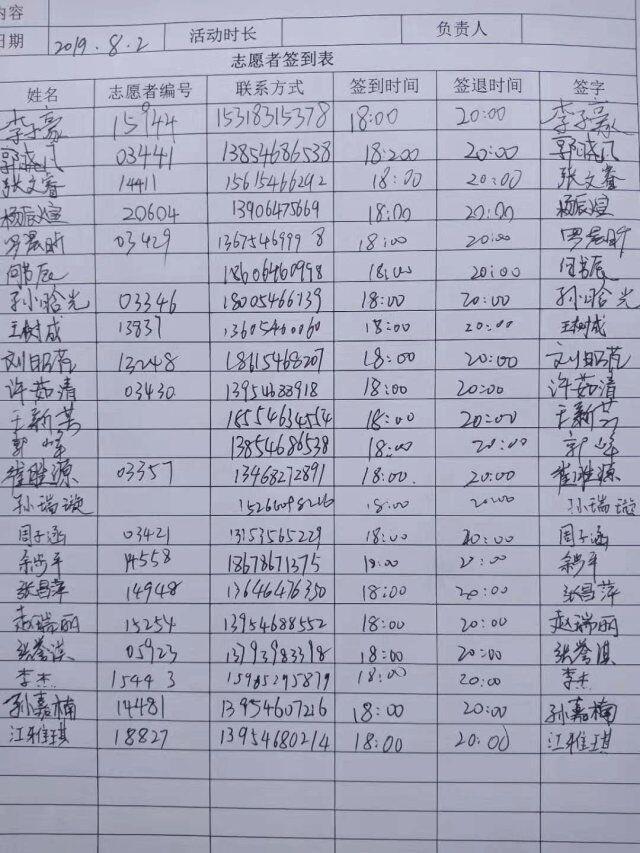 内容
日期 2019.8.2 活动时长 负责人
志愿者签到表
姓名 志愿者编号 联系方式 签到时间 签退时间 签字
李子豪 15944 15318315378 18:00 20:00 李子豪
郭晓凡 03441 13854686538 18:200 20:00 郭晓凡
张文睿 14411 15615466292 18:00 20:00 张文睿
杨辰煊 20604 13906475669 18:00 20:00 杨辰煊
03429 13675469998 18:00 20:00
18606460998 18:00 20:00
孙晗光 03346 18005466139 18:00 20:00 孙晗光
王树成 13837 13605460060 18:00 20:00 王树成
刘昭范 13248 18615468207 18:00 20:00 刘昭范
许茹清 03430 18:00 20:00 许茹清
王新芸 18554634554 18:00 20:00 王新芸
郭峰 13854686538 18:00 20:00 郭峰
03357 13468272891 18:00 20:00
孙瑞璇 18:00 20:00 孙瑞璇
周子涵 03421 13153565229 18:00 20:00 周子涵
14558 18678671375 18:00
张昌萍 14948 13646476350 18:00 20:00 张昌萍
赵瑞丽 15254 13954688552 18:00 20:00 赵瑞丽
张誉淇 05923 13793983398 18:00 20:00 张誉淇
李杰 15443 18:00 20:00 李杰
孙嘉楠 14481 13954607216 18:00 20:00 孙嘉楠
江雅琪 18827 13954680214 18:00 20:00 江雅琪